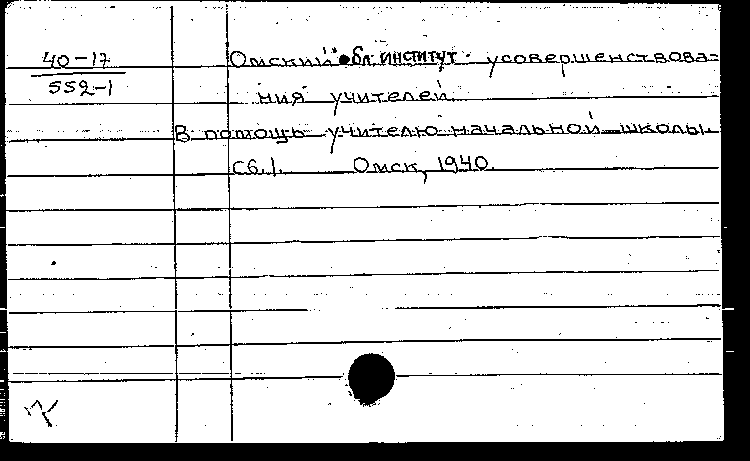 40-17
552-1
Омский обл. институт усовершенствова=
ния учителей.
В помощь учителю начальной школы.
Сб. 1. Омск, 1940.